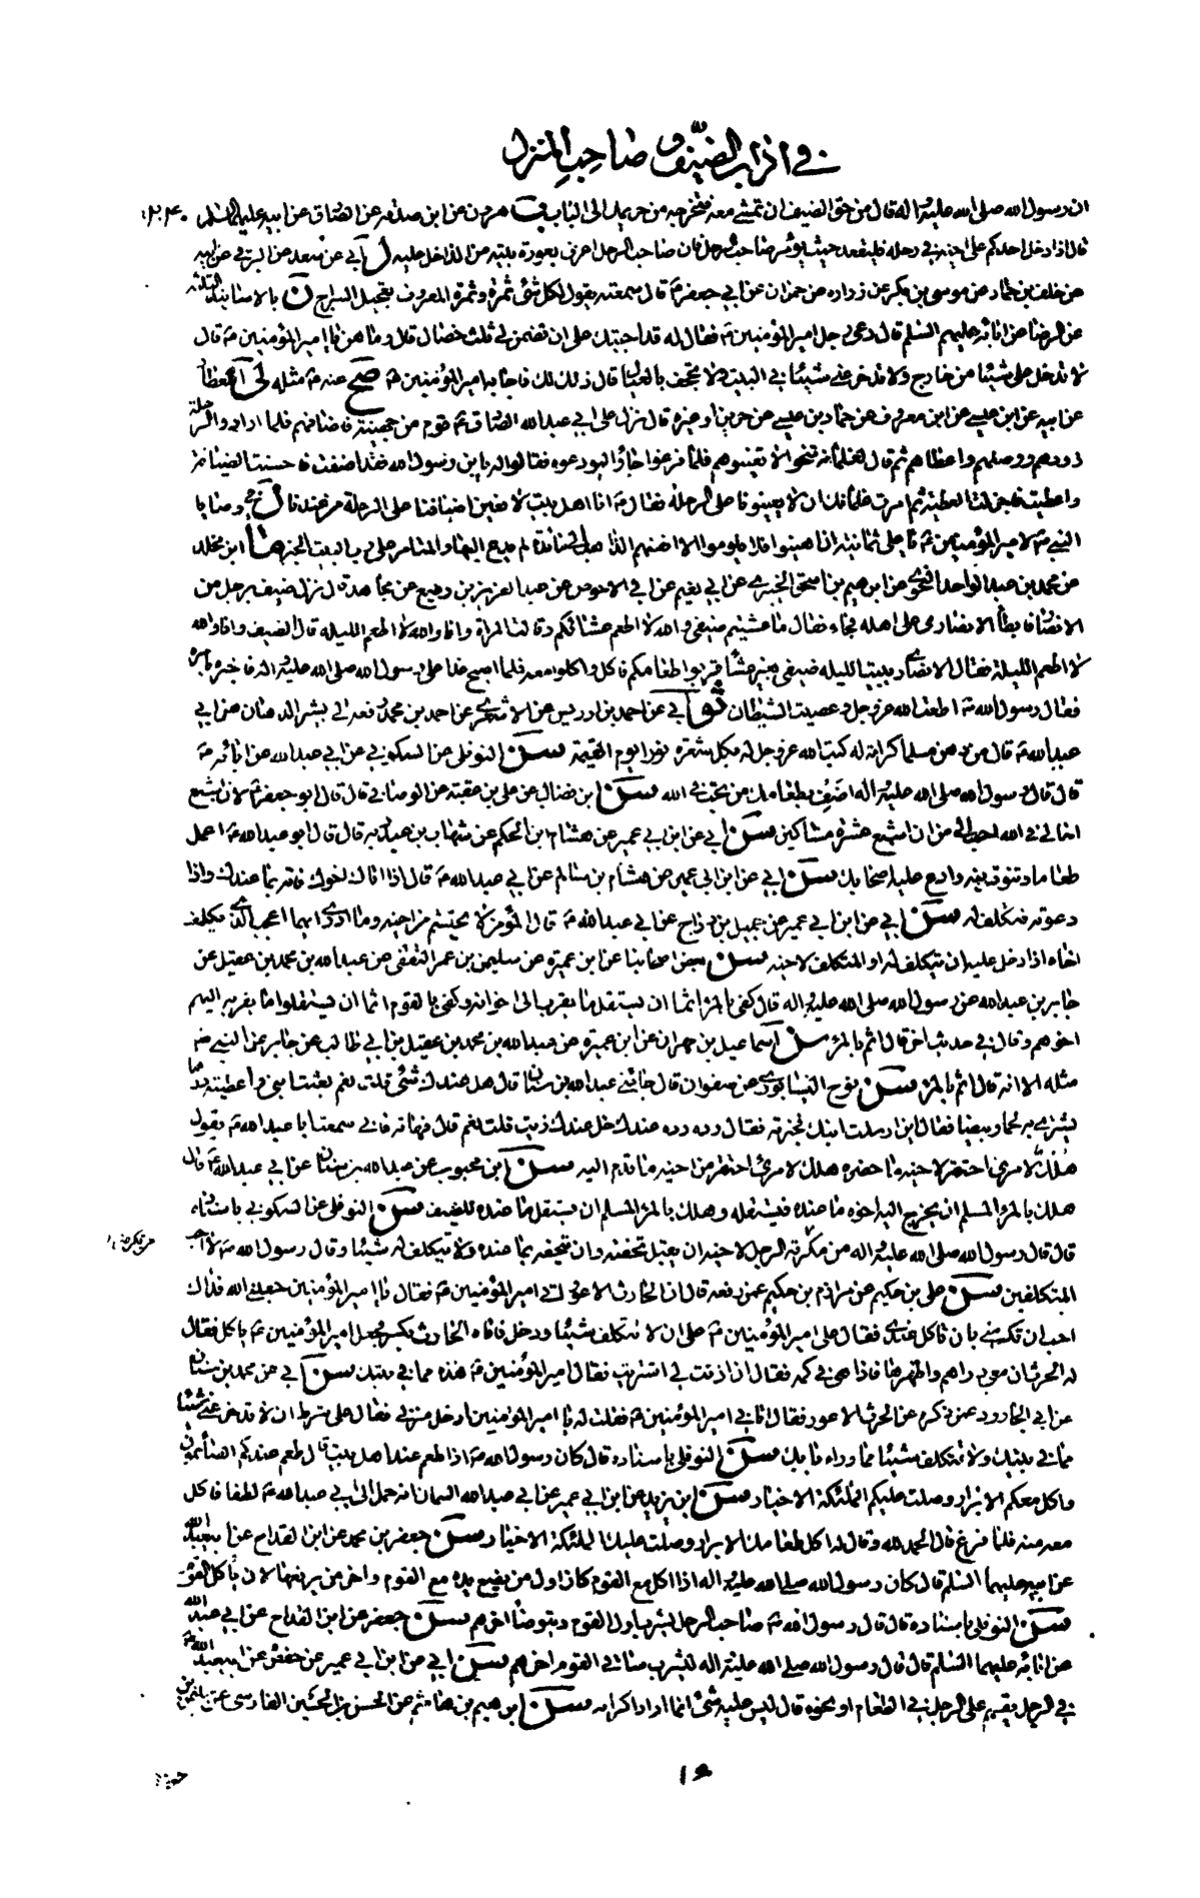 في اداب الضيف و صاحب المنزل
ان رسول الله صلى الله عليه واله قال من حق الضيف ان تمشى معه فتخرجه من حريمك الى الباب هرون عن ابن صدقه عن الصادق عن ابيه عليهما السلم
قال اذا دخل احدكم على اخيه في رحله فليقعد حيث يؤمر صاحب الرحل فان صاحب الرحل اعرف بعورة بيته من الداخل عليه ل ابي عن سعد عن البرقي عن ابيه
عن خلف بن حماد عن موسى بن بكر عن زراره عن حمران عن ابي جعفر ع قال سمعته يقول لكل شئ ثمرة وثمرة المعروف تعجيل السراح ن بالاسانيد الثلثة
عن الرضا عن ابائه عليهم السلم قال دعى رجل امير المؤمنين ع فقال له قد اجبتك على ان تضمن لي ثلث خصال قال وما هن يا امير المؤمنين ع قال
لا تدخل على شيئا من خارج ولا تدخر عني شيئا في البيت ولا تجحف بالعيال قال ذلك لك فاجابه امير المؤمنين ع صح عنه ع مثله لى العطار
عن ابيه عن ابن عيسى عن ابن معروف عن حماد بن عيسى عن حريز او غيره قال نزل على ابي عبد الله الصادق ع قوم من جهينة فاضافهم فلما ارادوا الرحلة
زودهم ووصلهم واعطاهم ثم قال لغلمانه تنحوا لا تعينوهم فلما فرغوا جاؤا ليودعوه فقالوا له يابن رسول الله فقد اضفت فاحسنت الضيافة
واعطيت فاجزلت العطية ثم امرت غلمانك ان لا يعينونا على الرحلة فقال ع انا اهل بيت لا نعين اضيافنا على الرحلة من عندنا ل في وصايا
النبي ص لامير المؤمنين ع يا على ثمانية ان اهينوا فلا يلوموا الا انفسهم الذاهب الى مائدة لم يدع اليها والمتامر على رب البيت الخبر ما ابن مخلد
عن محمد بن عبد الواحد النحوي عن ابرهيم بن اسحق الخ عن ابي نعيم عن ابي الاحوص عن عبد العزيز بن رفيع عن مجاهد قال نزل ضيف برجل من
الانصار فابطأ الانصارى على اهله فجاء فقال ما عشيتم ضيفي والله لا اطعم عشائكم وقالت المراة وانا والله لا اطعم الليلة قال الضيف وانا والله
لا اطعم الليلة فقال الانصاري يبيت الليله ضيفى بغير عشا قربوا طعامكم فاكل واكلوا معه فلما اصبح غدا على رسول الله صلى الله عليه واله فاخبره بامره
فقال رسول الله ص اطعت الله عز وجل وعصيت الشيطان ثو ابي عن احمد بن ادريس عن الاشعري عن احمد بن محمد رفعه الى بشر الدهان عن ابي
عبد الله ع قال من مسلما كرامة له كتب الله عز وجل له بكل شعرة نورا يوم القيمة سن النوفلى عن السكوني عن ابي عبد الله عن ابائه ع
قال قال رسول الله صلى الله عليه واله اضف بطعامك من تحب في الله سن ابن فضال عن على بن عقبة عن الوصافي قال قال ابو جعفر ع لان اشبع
اخا لي في الله احب الى من ان اشبع عشرة مساكين سن ابي عن ابن ابي عمير عن هشام ابن الحكم عن شهاب بن عبد ربه قال قال ابو عبد الله ع اعمل
طعاما وتنوق فيه وادع عليه اصحابك سن ابي عن ابن ابي عمير عن هشام بن سالم عن ابي عبد الله ع قال اذا اتاك اخوك فاته بما عندك واذا
دعوته فتكلف له سن ابي عن ابن ابي عمير عن جميل بن دراج عن ابي عبد الله ع قال المؤمن لا يحتشم من اخيه وما ادري ايهما اعجب الذي يكلف
اخاه اذا دخل عليه ان يتكلف له او المتكلف لاخيه سن بعض اصحابنا عن ابن عميرة عن سليمن بن عمر الثقفى عن عبد الله بن محمد بن عقيل عن
جابر بن عبد الله عن رسول الله صلى الله عليه واله قال كفى بالمرء اثما ان يستقل ما يقرب الى اخوانه وكفى بالقوم اثما ان يستقلوا ما يقربه اليهم
اخوهم وقال في حديث اخر قال اثم بالمرء سن اسماعيل بن مهران عن ابن عميرة عن عبد الله بن محمد بن عقيل بن ابي طالب عن جابر عن النبي ص
مثله الا انه قال اثم بالمرء سن نوح النيسابوري عن صفوان قال جائني عبد الله بن سنان قال هل عندك شئ قلت نعم بعثت ابني و اعطيته درهما
يشتري به لحما وبيضا فقال اين ارسلت ابنك فخبرته فقال رده رده عندك خل عندك زيت قلت نعم قال فهاته فاني سمعت ابا عبد الله ع يقول
هلك لامرئ احتقر لاخيه ما حضره هلك لامرئ احتقر من اخيه ما قدم اليه سن ابن محبوب عن عبد الله بن سنان عن ابي عبد الله ع قال
هلك بالمرء المسلم ان يخرج اليه اخوه ما عنده فيستقله وهلك بالمرء المسلم ان يستقل ما عنده للضيف سن النوفلى عن السكوني باسناده
قال قال رسول الله صلى الله عليه واله من مكرمة الرجل لاخيه ان يقبل تحفته وان يتحفه بما عنده ولا يتكلف له شيئا وقال رسول الله ص لا احب
المتكلفين سن على بن حكيم عن مرازم بن حكيم عمن رفعه قال ان الحارث الاعور اتى امير المؤمنين ع فقال يا امير المؤمنين جعلني الله فداك
احب ان تكرمني بان تاكل عندي فقال على امير المؤمنين ع على ان لا تتكلف شيئا ودخل فاتاه الحارث بكسر فجعل امير المؤمنين ع ياكل فقال
له الحرث ان معي دراهم واظهرها فاذا هي في كمه فقال ان اذنت لي اشتريت فقال امير المؤمنين ع هذه مما في بيتك سن ابي عن محمد بن سنان
عن ابي الجارود عمن ذكره عن الحرث الاعور فقال اتاني امير المؤمنين ع فقلت له يا امير المؤمنين ادخل منزلي فقال على شرط ان لا تدخر عني شيئا
مما في بيتك ولا تتكلف شيئا مما وراء بابك سن النوفلى باسناده قال كان رسول الله ص اذا طعم عند اهل بيت قال طعم عندكم الصائمون
واكل معكم الابرار وصلت عليكم الملئكة الاخيار سن ابن يزيد عن ابن ابي عمير عن ابي عبد الله السمان انه حمل الى ابي عبد الله ع لطفا فاكل
معه منه فلما فرغ قال الحمد لله وقال له اكل طعامك الابرار وصلت عليك الملئكة الاخيار سن جعفر بن محمد عن ابن القداح عن ابي عبد الله
عن ابيه عليهما السلم قال كان رسول الله صلى الله عليه واله اذا اكل مع القوم كان اول من يضع يده مع القوم واخر من يرفعها لان ياكل القوم
سن النوفلى باسناده قال قال رسول الله ص صاحب الرحل يشرب اول القوم ويتوضأ اخرهم سن جعفر عن ابن القداح عن ابي عبد الله
عن ابائه عليهما السلم قال قال رسول الله صلى الله عليه واله ليشرب ساقي القوم اخرهم سن ابي عن ابن ابي عمير عن حفص عن ابي عبد الله ع
في الرجل يقسم على الرجل في الطعام او نحوه قال ليس عليه شئ انما اراد اكرامه سن ابرهيم بن هاشم عن الحسن بن الحسين الفارسى عن سليمن بن
١٥